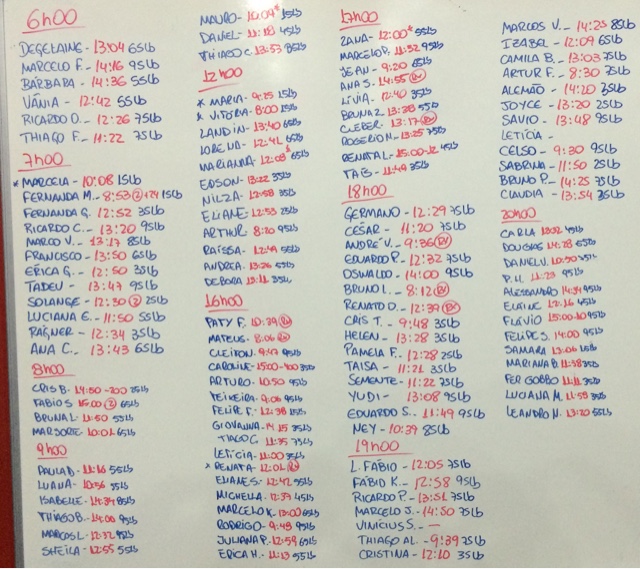 6h00
DEGELAINE - 13:04 65Lb
MARCELO F. - 14:16 95Lb
BÁRBARA - 14:36 55Lb
VÂNIA - 12:42 55Lb
RICARDO O. - 12:26 75Lb
THIAGO F. - 11:22 75Lb
7h00
* MARCELA - 10:08 15Lb
FERNANDA M. - 8:53 2 15Lb
FERNANDA G. 12:52 35Lb
RICARDO C. - 13:20 95Lb
MARCO V. - 13:17 85Lb
FRANCISCO - 13:50 65Lb
ERICA G. - 12:50 35Lb
TADEU - 13:47 95Lb
SOLANGE - 12:30 2 25Lb
LUCIANA E. - 11:50 55Lb
RAGNER - 12:34 35Lb
ANA C. - 13:43 65Lb
8h00
CRIS B. - 14:50 25Lb
FABIO S 15:00 2 65Lb
BRUNA L - 11:50 55Lb
MARJORIE - 10:01 65Lb
9h00
PAULA D - 11:16 55Lb
LUANA - 10:56 55Lb
ISABELLE - 14:34 85Lb
THIAGO B. - 14:00 95Lb
MARCOS L. - 12:32 95Lb
SHEILA - 12:55 55Lb
MAURO - 10:09* 15Lb
DANIEL - 11:18 45Lb
THIAGO C. - 13:53 85Lb
12h00
* MARIA - 9:25 15Lb
* VITORIA - 8:00 15Lb
LANDIN - 13:40 65Lb
LORENA - 12:41 65Lb
MARIANNA - 12:08* 65Lb
EDSON - 13:22 35Lb
NILZA - 12:58 35Lb
ELIANE - 12:53 25Lb
ARTHUR - 8:20 95Lb
RAÍSSA - 12:49 55Lb
ANDREA - 13:26 55Lb
DEBORA - 13:11 35Lb
16h00
PATY F. - 10:39 RX
MATEUS - 8:06 RX
CLEITON - 9:47 95Lb
CAROLINE - 15:00 35Lb
ARTURO - 10:50 95Lb
TEIXEIRA - 9:06 95Lb
FELIPE F. - 12:38 15Lb
GIOVANNA - 14:15 35Lb
TIAGO C. - 11:35 75Lb
LETÍCIA - 11:00 35Lb
* RENATA - 12:01 RX
ELIANE S. - 12:42 95Lb
MICHELLA - 12:37 45Lb
MARCELO K. 13:00 65Lb
RODRIGO - 9:48 95Lb
JULIANA P. - 12:59 65Lb
ERICA H. - 11:13 55Lb
17h00
ZANA - 12:00* 55Lb
MARCELO P. - 11:32 95Lb
JEAN - 9:20 65Lb
ANA S. - 14:55 RX
LÍVIA - 12:40 35Lb
BRUNA Z 13:38 55Lb
CLEBER - 13:17 RX
ROGERIO H - 13:25 75Lb
RENATA L - 15:00-12 45Lb
TAÍS - 11:49 35Lb
18h00
GERMANO - 12:29 75Lb
CÉSAR - 11:20 75Lb
ANDRÉ V. - 9:36 RX
EDUARDO P. - 12:32 75Lb
OSWALDO - 14:00 95Lb
BRUNO L. - 8:12 RX
RENATO D. - 12:39 RX
CRIS T. - 9:48 35Lb
HELEN - 13:28 35Lb
PAMELA F. - 12:28 25Lb
TAISA - 11:21 35Lb
SEMENTE - 11:22 75Lb
YUDI - 13:08 95Lb
EDUARDO S. - 11:49 95Lb
NEY - 10:37 85Lb
19h00
L. FÁBIO - 12:05 75Lb
FÁBIO K. - 12:58 95Lb
RICARDO P. - 13:51 75Lb
MARCELO J. - 14:50 75Lb
VINÍCIUS S. - —
THIAGO AL. - 9:39 75Lb
CRISTINA - 12:10 35Lb
MARCOS V. - 14:23 85Lb
IZABEL - 12:09 65Lb
CAMILA B. - 13:03 75Lb
ARTUR F. - 8:30 75Lb
ALEMÃO - 14:20 75Lb
JOYCE - 13:20 25Lb
SAVIO - 13:48 95Lb
LETÍCIA -
CELSO - 9:30 95Lb
SABRINA - 11:50 25Lb
BRUNO P. - 14:25 75Lb
CLAUDIA - 13:54 35Lb
20h00
CARLA 13:02 45Lb
DOUGLAS - 14:28 65Lb
DANIEL V. 10:50 75Lb
P.H. - 11:23 95Lb
ALESSANDRO - 14:34 95Lb
ELAINE - 12:16 45Lb
FLÁVIO - 15:00-10 95Lb
FELIPE S. 14:00 95Lb
SAMARA - 13:06 15Lb
MARIANA B. 11:58 35Lb
FER GOBBO - 11:11 35Lb
LUCIANA M. - 11:59 35Lb
LEANDRO N. - 13:20 55Lb